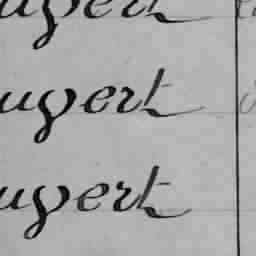 ugert
ugert
ugert